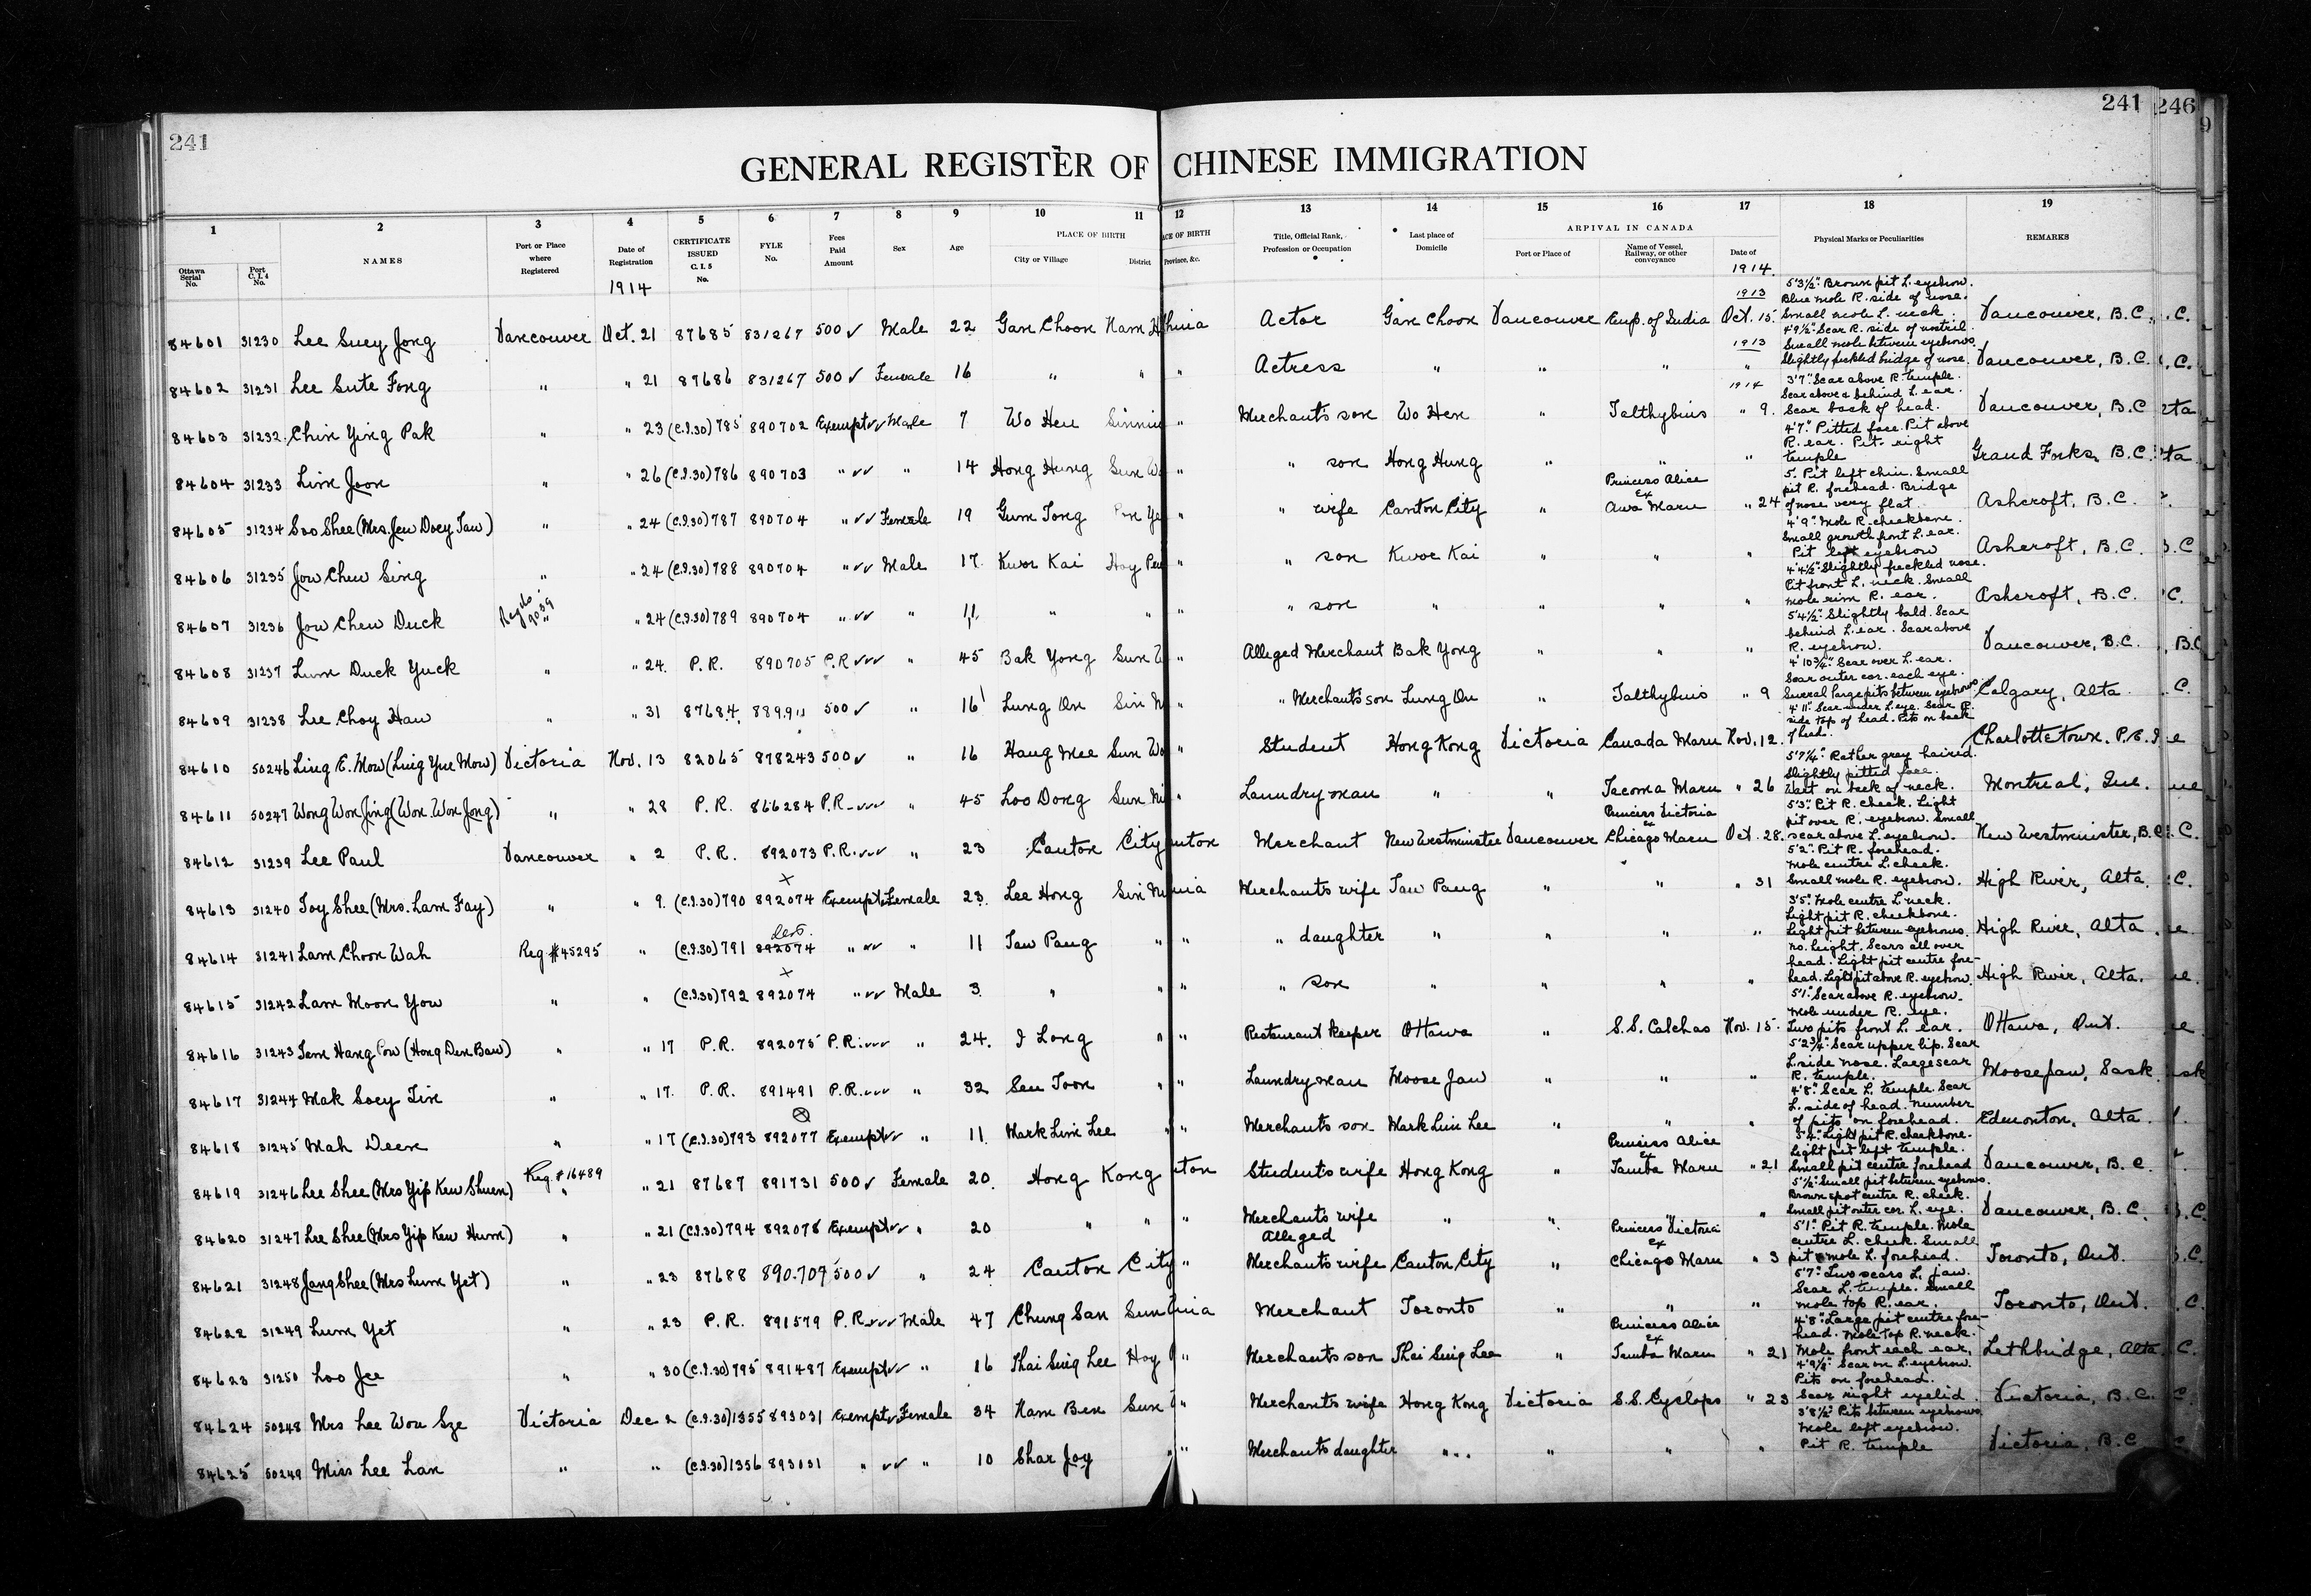 241
241
246
9
GENERAL REGISTER OF CHINESE IMMIGRATION
1 2 3 4 5 6 7 8 9 10 11 12 13 14 15 16 17 18 19
Ottawa Serial No.
Port C.I.4 No.
NAMES
Port or Place where Registered
Date of Registration
1914
CERTIFICATE ISSUED C. I. 5 No.
FYLE No.
Fees Paid Amount
Sex
Age
PLACE OF BIRTH
City or Village
District
ACE OF BIRTH
Province, &c.
Title, Official Rank, Profession or Occupation
Last place of Domicile
ARRIVAL IN CANADA
Port or Place of
Name of Vessel, Railway, or other conveyance
Date of
1914.
Physical Marks or Peculiarities
REMARKS
84601 31230 Lee Suey Jong Vancouver Oct. 21 87685 831267 500 ✓ Male 22 Gan Choon Nam H hina Actor Gan Choon Vancouver Emp. of India 1913 Oct. 15 5'3½". Brown pit L. eyebrow. Blue mole R. side of nose. Small mole L. neck. Vancouver, B.C.
84602 31231 Lee Sute Fong " " 21 87686 831267 500 ✓ Female 16 " " " Actress " " " 1913 " 4'9½". Scar R. side of nostril. Small mole between eyebrows. Slightly freckled bridge of nose. Vancouver, B.C.
84603 31232 Chin Ying Pak " " 23 (C.I.30) 785 890702 Exempt ✓✓ Male 7 Wo Hen Sinnin " Merchant's son Wo Hen " Talthybius 1914 " 9. 3'7". Scar above R. temple. Scar above & behind L. ear. Scar back of head. Vancouver, B.C
84604 31233 Lim Joon " " 26 (C.I.30) 786 890703 " ✓✓ " 14 Hong Hung Sun W " " son Hong Hung " " " 4'7". Pitted face. Pit above R. ear. Pit right temple Grand Forks, B.C.
84605 31234 Soo Shee (Mrs. Jew Doey Taw) " " 24 (C.I.30) 787 890704 " ✓✓ Female 19 Gum Tong Pun Ye " " wife Canton City " Princess Alice Ex Awa Maru " 24 5. Pit left chin. Small pit R. forehead. Bridge of nose very flat. Ashcroft, B.C.
84606 31235 Jow Chew Sing " " 24 (C.I.30) 788 890704 " ✓✓ Male 17. Kwor Kai Hoy Pen " " son Kwor Kai " " " 4'9". Mole R. cheekbone. Small growth front L. ear. Pit left eyebrow Ashcroft, B.C.
84607 31236 Jow Chew Duck Reg No. 9039 " " 24 (C.I.30) 789 890704 " ✓✓ " 11 " " " son " " " " 4'4½". Slightly freckled nose. Pit front L. neck. Small mole rim R. ear. Ashcroft, B.C.
84608 31237 Lum Duck Yuck " " 24. P.R. 890705 P.R ✓✓✓ " 45 Bak Yong Sun W " Alleged Merchant Bak Yong " " " 5'4½". Slightly bald. Scar behind L. ear. Scar above R. eyebrow. Vancouver, B.C.
84609 31238 Lee Choy Haw " " 31 87684 889911 500 ✓ " 16 Lung On Sin N " " Merchant's son Lung On " Talthybius " 9 4'10¾". Scar over L. ear. Scar outer cor. each eye. Several large pits between eyebrows Calgary, Alta.
84610 50246 Ling E. Mow (Ling Yue Mow) Victoria Nov. 13 82065 878243 500 ✓ " 16 Hang Mee Sun Wo " Student Hong Kong Victoria Canada Maru Nov. 12. 4'11". Scar under L. eye. Scar R. side top of head. Pits on back of head. Charlottetown. P.E.I
84611 50247 Wong Won Jing (Won Won Jong) " " 28 P.R. 866284 P.R. ✓✓✓ " 45 Loo Dong Sun Ni " Laundryman " " Tacoma Maru " 26 5'7¼". Rather grey haired. Slightly pitted face. Wart on back of neck. Montreal, Que.
84612 31239 Lee Paul Vancouver " 2 P.R. 892073 P.R. ✓✓✓ " 23 Canton City nton Merchant New Westminster Vancouver Princess Victoria Ex Chicago Maru Oct. 28. 5'3". Pit R. cheek. Light pit over R. eyebrow. Small scar above L. eyebrow. New Westminster, B.C.
84613 31240 Toy Shee (Mrs. Lam Fay) " " 9. (C.I.30) 790 892074 Exempt Female 23. Lee Hong Sin N hina Merchant's wife Taw Pang " " " 31 5'2". Pit R. forehead. Mole centre L. cheek. Small mole R. eyebrow. High River, Alta.
84614 31241 Lam Choon Wah Reg #45295 " (C.I.30) 791 892074 " ✓✓ " 11 Taw Pang " " " daughter " " " " 3'5". Mole centre L. neck. Light pit R. cheekbone. Light pit between eyebrows. High River, Alta
84615 31242 Lam Moon You " " (C.I.30) 792 892074 " ✓✓ Male 3. " " " " son " " " " No height. Scars all over head. Light pit centre forehead. Light pit above R. eyebrow. High River, Alta.
84616 31243 Tem Hang Pow (Hong Den Baw) " " 17 P.R. 892075 P.R. ✓✓✓ " 24. I Long " " Restaurant keeper Ottawa " S.S. Calchas Nov. 15. 5'1". Scar above R. eyebrow. Mole under R. eye. Two pits front L. ear. Ottawa, Ont.
84617 31244 Mak Soey Tin " " 17. P.R. 891491 P.R. ✓✓✓ " 32 Sen Toon " " Laundryman Moose Jaw " " " 5'2¾". Scar upper lip. Scar L. side nose. Large scar R. temple. Moosejaw, Sask.
84618 31245 Mah Deen " " 17 (C.I.30) 793 892077 Exempt ✓✓ " 11. Mark Lim Lee " " Merchant's son Mark Lim Lee " " " 4'8". Scar L. temple. Scar L. side of head. Number of pits on forehead. Edmonton, Alta.
84619 31246 Lee Shee (Mrs Yip Kew Shuen) Reg. #16489 " " 21 87687 891731 500 ✓ Female 20. Hong Kong ton Student's wife Hong Kong " Princess Alice Ex Tamba Maru " 21 5'4". Light pit R. cheekbone. Light pit left temple. Small pit centre forehead Vancouver, B.C.
84620 31247 Lee Shee (Mrs Yip Kew Hum) " " 21 (C.I.30) 794 892078 Exempt ✓✓ " 20 " " " Merchant's wife " " " " 5'½". Small pit between eyebrows. Brown spot centre R. cheek. Small pit outer cor. L. eye. Vancouver, B.C.
84621 31248 Jang Shee (Mrs Lum Yet) " " 23 87688 890.709 500 ✓ " 24 Canton City " Alleged Merchant's wife Canton City " Princess Victoria Ex Chicago Maru " 3 5'1". Pit R. temple. Mole centre L. cheek. Small pit & mole L. forehead. Toronto, Ont.
84622 31249 Lum Yet " " 23 P.R. 891579 P.R. ✓✓✓ Male 47 Chung San Sun hina Merchant Toronto " " " 5'7". Two scars L. jaw. Scar L. temple. Small mole top R. ear. Toronto, Ont.
84623 31250 Loo Jee " " 30 (C.I.30) 795 891487 Exempt ✓✓ " 16 Thai Sing Lee Hoy " Merchant's son Thai Sing Lee " Princess Alice Ex Tamba Maru " 21 4'8". Large pit centre forehead. Mole top R. neck. Mole front each ear. Lethbridge, Alta.
84624 50248 Mrs Lee Wou Sze Victoria Dec 2 (C.I.30) 1355 893031 Exempt ✓ Female 34 Nam Ben Sun " Merchant's wife Hong Kong Victoria S.S. Cyclops " 23 4'9¼". Scar on L. eyebrow. Pits on forehead. Scar right eyelid. Victoria, B.C.
84625 50249 Miss Lee Lan " " (C.I.30) 1356 893031 " ✓✓ " 10 Shar Joy " " Merchant's daughter " " " " 3'8½". Pits between eyebrows. Mole left eyebrow. Pit R. temple Victoria, B.C.